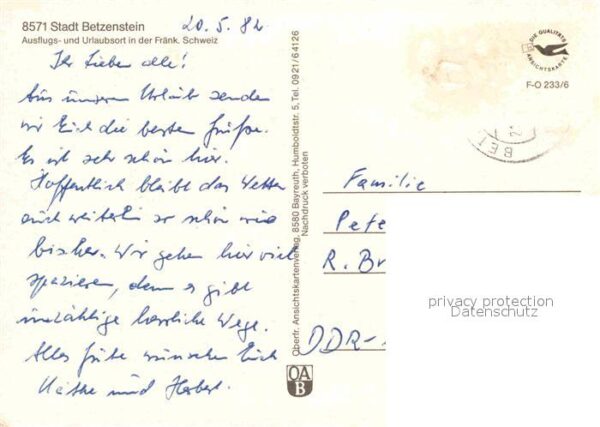 8571 Stadt Betzenstein
Ausflugs- und Urlaubsort in der Fränk. Schweiz
20.5.82
Ihr Lieben alle!
Aus unserem Urlaub senden
wir Euch die besten Grüße.
Es ist sehr schön hier.
Hoffentlich bleibt das Wetter
auch weiterhin so schön wie
bisher. Wir gehen hier viel
spazieren, denn es gibt
unzählige herrliche Wege.
Alles Gute wünschen Euch
und Herbert.
Oberfr. Ansichtskartenverlag, 8580 Bayreuth, Humboldtstr. 5, Tel. 0921/64126
Nachdruck verboten
OA
B
DIE QUALITÄTS
ANSICHTSKARTE
F-O 233/6
BET
Familie
Pete
R. Br
DDR-
privacy protection
Datenschutz